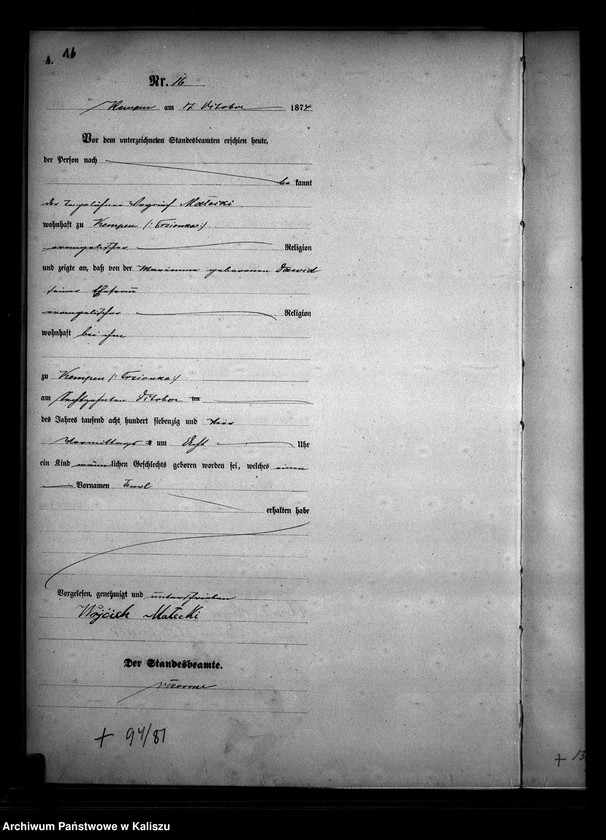 A. 16
Nr. 16
Kempen am 17 Oktober 1874
Vor dem unterzeichneten Standesbeamten erschien heute,
der Person nach
be kannt
der Małecki
wohnhaft zu Kempen
evangelischer Religion
und zeigte an, daß von der Marianna geborenen Dawid
seiner Ehefrau
evangelischer Religion
wohnhaft bei ihm
zu Kempen
am Oktober ten
des Jahres tausend acht hundert siebenzig und vier
Vormittags um Uhr
ein Kind männlichen Geschlechts geboren worden sei, welches einen
Vornamen
erhalten habe
Vorgelesen, genehmigt und unterschrieben
Wojciek Małecki
Der Standesbeamte.
+ 94/81
+ 13
Archiwum Państwowe w Kaliszu